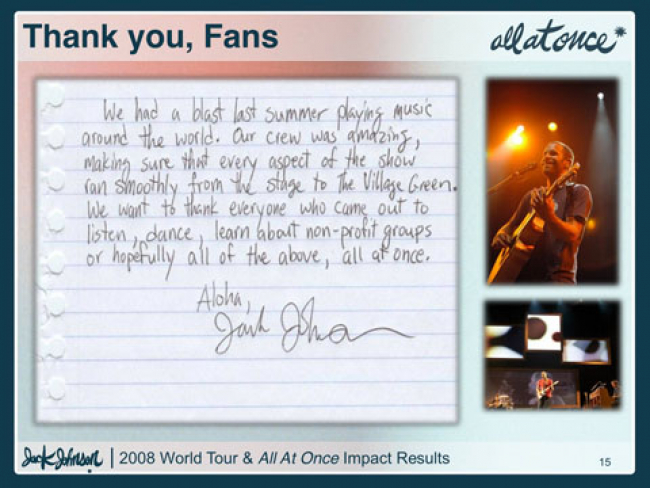 Thank you, Fans
all at once*
We had a blast last summer playing music
around the world. Our crew was amazing,
making sure that every aspect of the show
ran smoothly from the stage to The Village Green.
We want to thank everyone who came out to
listen, dance, learn about non-profit groups
or hopefully all of the above, all at once.
Aloha,
Jack Johnson
Jack Johnson | 2008 World Tour & All At Once Impact Results
15